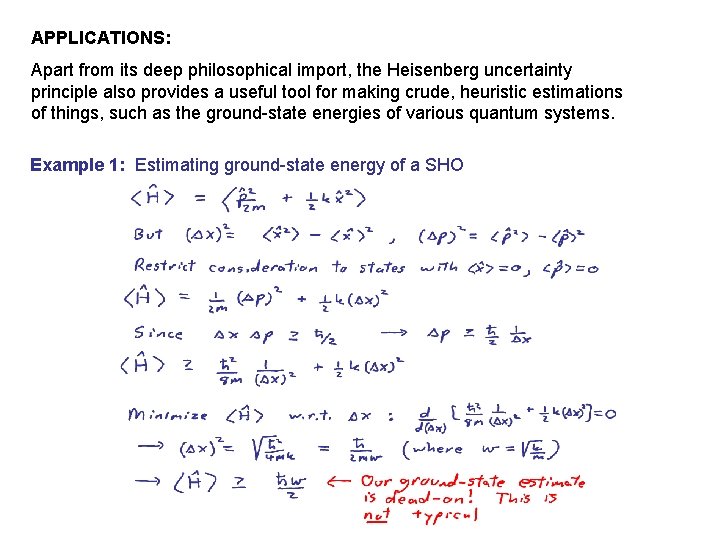 APPLICATIONS:
Apart from its deep philosophical import, the Heisenberg uncertainty
principle also provides a useful tool for making crude, heuristic estimations
of things, such as the ground-state energies of various quantum systems.
Example 1: Estimating ground-state energy of a SHO
⟨Ĥ⟩ = ⟨p̂²/2m + ½ k x̂²⟩
But (Δx)² = ⟨x̂²⟩ − ⟨x̂⟩², (Δp)² = ⟨p̂²⟩ − ⟨p̂⟩²
Restrict consideration to states with ⟨x̂⟩=0, ⟨p̂⟩=0
⟨Ĥ⟩ = 1/2m (Δp)² + ½ k(Δx)²
Since Δx Δp ≥ ℏ/2 → Δp ≥ ℏ/2 1/Δx
⟨Ĥ⟩ ≥ ℏ²/8m 1/(Δx)² + ½ k(Δx)²
Minimize ⟨Ĥ⟩ w.r.t. Δx : d/d(Δx) [ℏ²/8m 1/(Δx)² + ½ k(Δx)²] = 0
→ (Δx)² = √(ℏ²/4mk) = ℏ/2mω (where ω = √(k/m))
→ ⟨Ĥ⟩ ≥ ℏω/2 ← Our ground-state estimate
is dead-on! This is
not typical